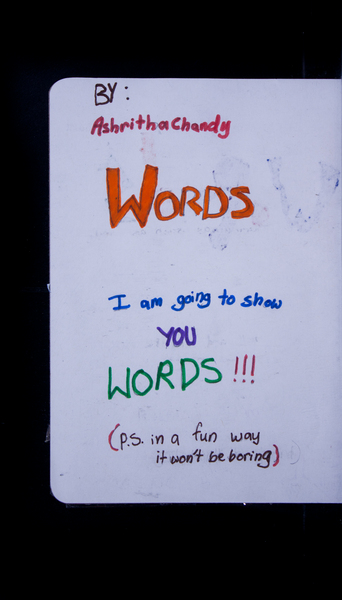 BY:
Ashritha Chandy
WORDS
I am going to show
YOU
WORDS!!!
(P.S. in a fun way
it won't be boring)